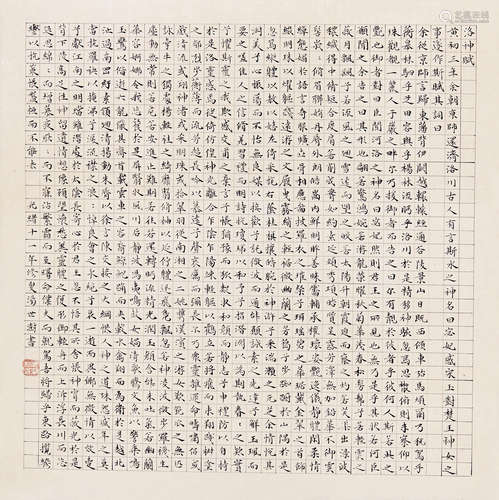 洛神賦
黃初三年余朝京師還濟洛川古人有言斯水之神名曰宓妃感宋玉對楚王神女之
事遂作斯賦其詞曰
余從京師言歸東藩背伊闕越轘轅經通谷陵景山日既西傾車殆馬煩爾乃稅駕乎
蘅皋秣駟乎芝田容與乎陽林流盼乎洛川於是精移神駭忽焉思散俯則未察仰以
殊觀覩一麗人于巖之畔爾乃援御者而告之曰爾有覿於彼者乎彼何人斯若此之
豔也御者對曰臣聞河洛之神名曰宓妃然則君王之所見也無乃是乎其狀若何臣
願聞之余告之曰其形也翩若驚鴻婉若遊龍榮曜秋菊華茂春松髣髴兮若輕雲之
蔽月飄颻兮若流風之迴雪遠而望之皎若太陽升朝霞迫而察之灼若芙蕖出淥波
穠纖得中修短合度肩若削成腰如約素延頸秀項皓質呈露芳澤無加鉛華不御雲
髻峩峩修眉聯娟丹脣外朗皓齒內鮮明眸善睞靨輔承權瓌姿豔逸儀靜體閑柔情
綽態媚於語言奇服曠世骨像應圖披羅衣之璀粲兮珥瑤碧之華琚戴金翠之首飾
綴明珠以耀軀踐遠遊之文履曳霧綃之輕裾微幽蘭之芳藹兮步踟躕於山隅於是
忽焉縱體以遨以嬉左倚采旄右蔭桂旗攘皓腕於神滸兮采湍瀨之玄芝余情悅其
淑美兮心振蕩而不怡無良媒以接懽兮託微波而通辭願誠素之先達兮解玉珮而
要之嗟佳人之信修羌習禮而明詩抗瓊珶以和予兮指潛淵而為期執眷眷之款實
兮懼斯靈之我欺感交甫之棄言兮悵猶豫而狐疑收和顏而靜志兮申禮防以自持
於是洛靈感焉徙倚彷徨神光離合乍陰乍陽竦輕軀以鶴立若將飛而未翔踐椒塗
之郁烈步蘅薄而流芳超長吟以永慕兮聲哀厲而彌長爾迺眾靈雜遝命儔嘯侶或
戲清流或翔神渚或采明珠或拾翠羽從南湘之二妃攜漢濱之游女歎匏瓜之無匹
兮詠牽牛之獨處揚輕袿之猗靡兮翳修袖以延佇體迅飛鳧飄忽若神凌波微步羅韈生
塵動無常則若危若安進止難期若往若還轉眄流精光潤玉顏含辭未吐氣若幽蘭
華容婀娜令我忘飡於是屏翳收風川后靜波馮夷鳴鼓女媧清歌騰文魚以警乘鳴
玉鸞以偕逝六龍儼其齊首載雲車之容裔鯨鯢踴而夾轂水禽翔而為衛於是越北
沚過南岡紆素領迴清揚動朱脣以徐言陳交接之大綱恨人神之道殊怨盛年之莫
當抗羅袂以掩涕兮淚流襟之浪浪悼良會之永絕兮哀一逝而異鄉無微情以效愛
兮獻江南之明璫雖潛處於太陰長寄心於君王忽不悟其所舍悵神宵而蔽光於是
背下陵高足往神留遺情想像顧望懷愁冀靈體之復形御輕舟而上泝浮長川而忘
返思綿綿而增慕夜耿耿而不寐霑繁霜而至曙命僕夫而就駕吾將歸乎東路攬騑
轡以抗策悵盤桓而不能去 光緒十一年 湯世澍書